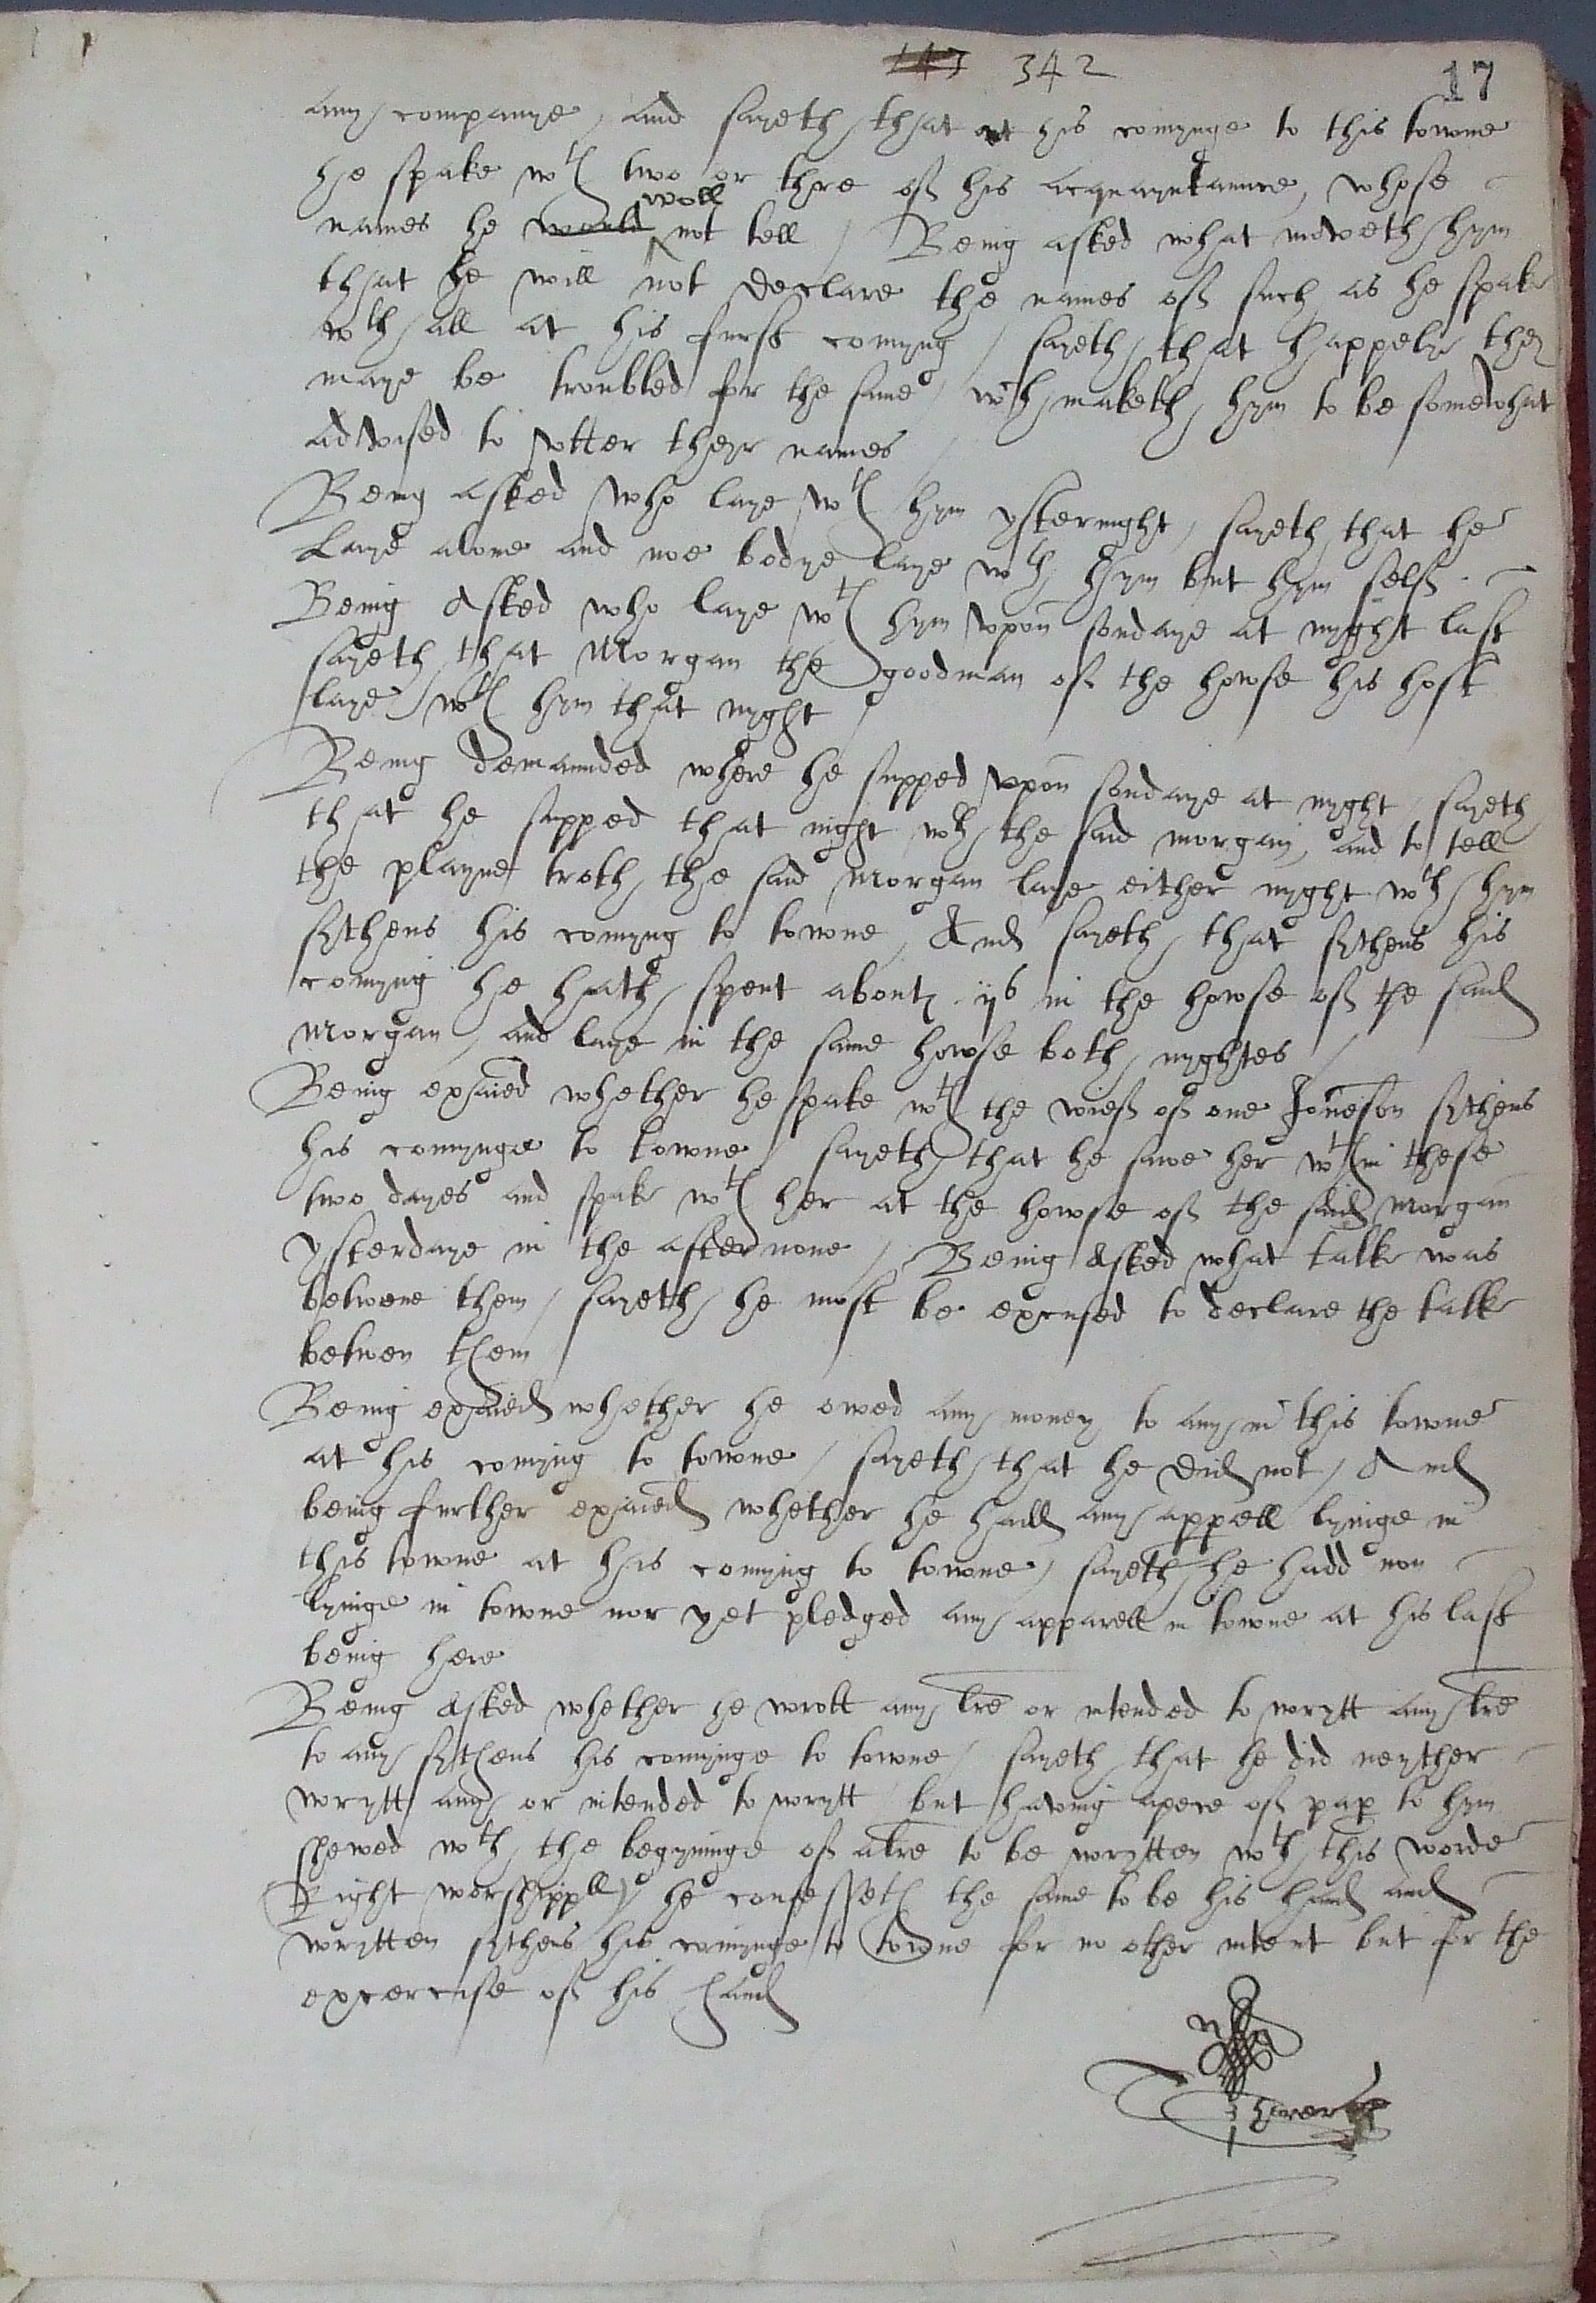 147 342 17
any companye, and sayeth that at his comynge to this towne
he spake wth two or thre off his acquayntaunce, whose
names he would woll not tell / Being asked what moveth hym
that he will not declare the names off such as he spake
wth all at his furst comyng / sayeth that happely they
maye be troubled for the same wch maketh hym to be somewhat
advised to vtter theyr names
Being asked who laye wth hym ysternight, sayeth that he
Laye alone and noe bodye laye wth hym but hym selff
Being asked who laye wth hym vpon sondaye at nyght last
sayeth that Morgan the goodman off the howse his host
laye wth hym that nyght
Being demaunded where he supped vpon sondaye at nyght / sayeth
that he supped that night wth the said morgan, and to tell
the playne troth the said Morgan laye either nyght wth hym
sythens his comyng to towne, And sayeth that sythens his
comyng he hath spent about ijs in the howse off the said
Morgan / and laye in the same howse both nyghtes
Being exaied whether he spake wth the wieff off one Joneson sythens
his comynge to towne / sayeth that he sawe her wthin these
two dayes and spake wth her at the howse off the said Morgan
ysterdaye in the afternone / Being asked what talke was
betwene them / sayeth he must be excused to declare the talke
betwen them
Being exaied whether he owed any money to any in this towne
at his comyng to towne / sayeth that he did not / And
being further exaied whether he hadd any appell lyinge in
this towne at his comyng to towne / sayeth he hadd non
lyinge in towne nor yet pledged any apparell in towne at his last
being here
Being asked whether he wrott any lre or intended to wrytt any lre
to any sythens his comynge to towne / sayeth that he did neyther
wrytt any or intended to wrytt / but having a pece off pap to hym
shewed wth the begynnige off a lre to be wrytten wth this worde
Right worshippll / he confesseth the same to be his hand and
wrytten sythens his comynge to towne for no other intent but for the
excercise off his hand